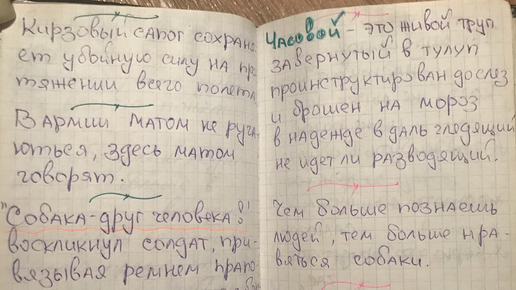 Кирзовый сапог сохраня
ет убойную силу на про
тяжении всего полета
В армии матом не руга-
ються, здесь матом
говорят.
"Собака-друг человека!"
воскликнул солдат, при-
вязывая ремнем прапо-
Часовой - это живой труп
завернутый в тулуп
проинструктирован до слез
и брошен на мороз
в надежде в даль глядящий
не идет ли разводящий.
Чем больше познаешь
людей, тем больше нра-
вяться собаки.